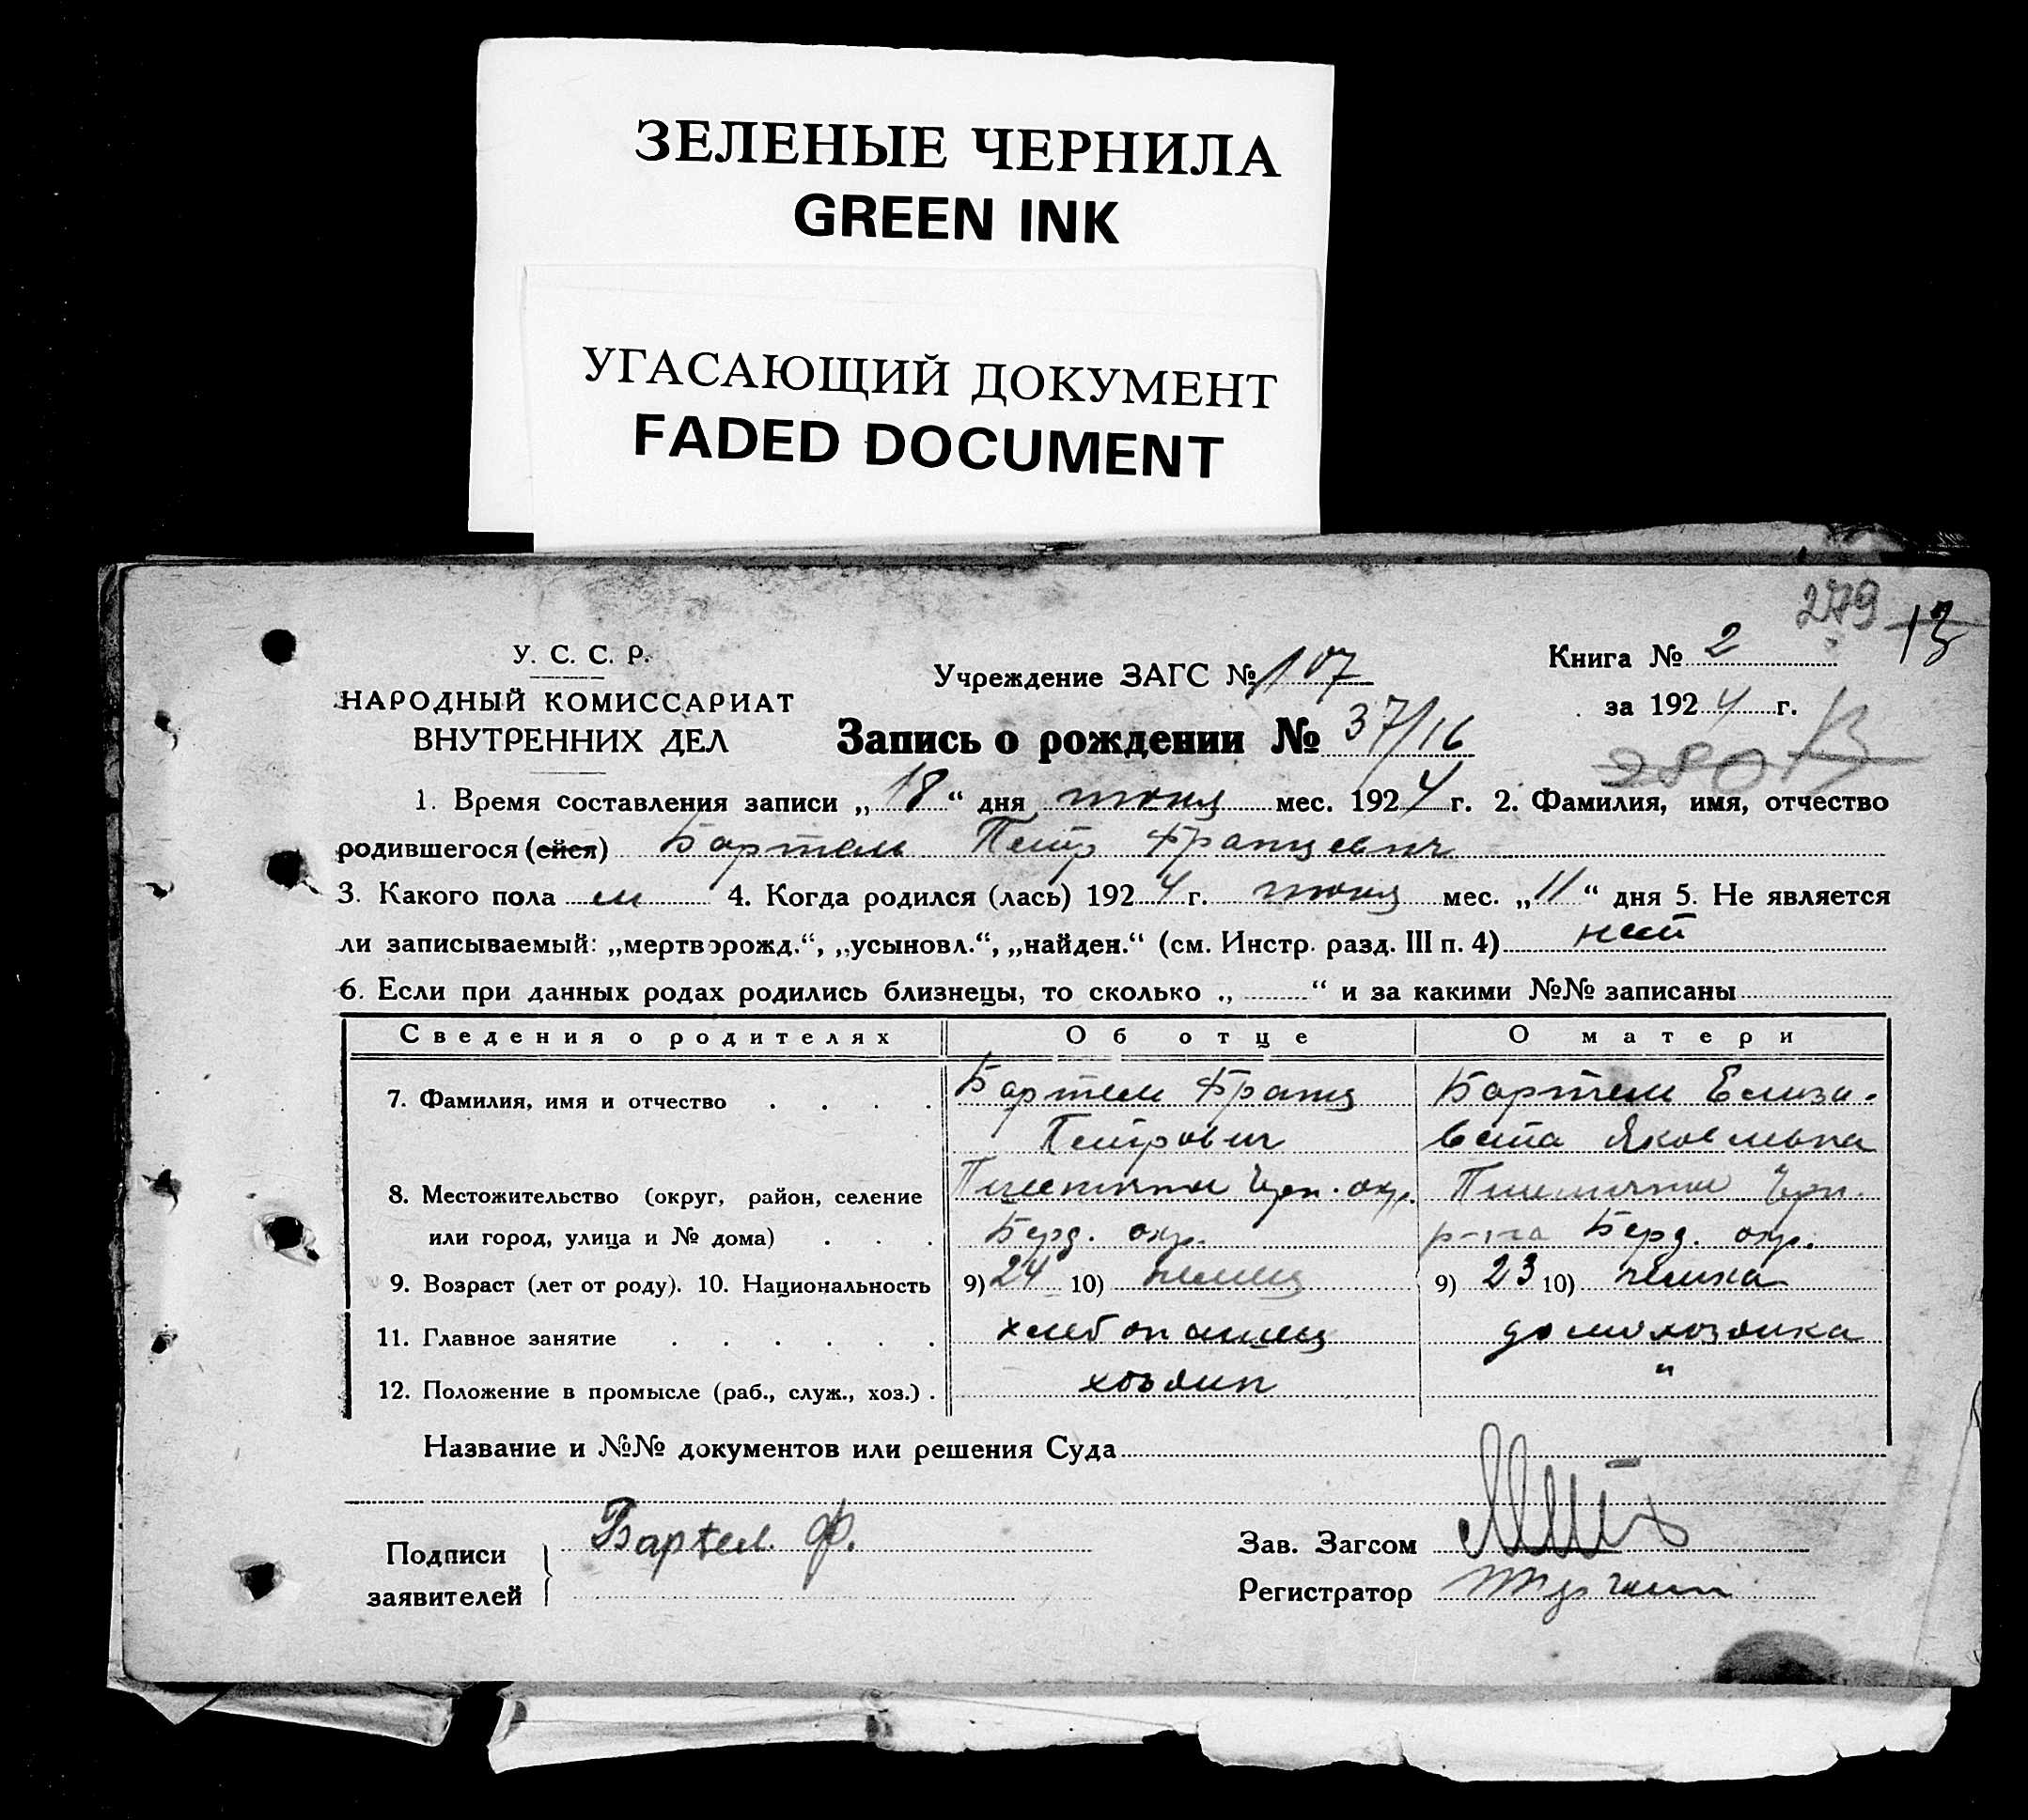 ЗЕЛЕНЫЕ ЧЕРНИЛА
GREEN INK
УГАСАЮЩИЙ ДОКУМЕНТ
FADED DOCUMENT
279 13
У. С. С. Р.
НАРОДНЫЙ КОМИССАРИАТ
ВНУТРЕННИХ ДЕЛ
Учреждение ЗАГС № 107
Запись о рождении № 37/16
Книга № 2
за 1924 г.
280
1. Время составления записи „18“ дня июня мес. 1924 г. 2. Фамилия, имя, отчество
родившегося (ейся) Бартель Петр Францевич
3. Какого пола м 4. Когда родился (лась) 1924 г. июня мес. „11“ дня 5. Не является
ли записываемый: „мертворожд.“, „усыновл.“, „найден.“ (см. Инстр. разд. III п. 4) нет
6. Если при данных родах родились близнецы, то сколько „ “ и за какими №№ записаны
Сведения о родителях Об отце О матери
7. Фамилия, имя и отчество Бартель Франц Бартель Елиза-
Петрович вета Яковлевна
8. Местожительство (округ, район, селение
или город, улица и № дома) Берд. окр. р-на Берд. окр.
9. Возраст (лет от роду). 10. Национальность 9) 24 10) немец 9) 23 10) немка
11. Главное занятие хлебопашец домохозяйка
12. Положение в промысле (раб., служ., хоз.) хозяин "
Название и №№ документов или решения Суда
Подписи заявителей Бартел. Ф.
Зав. Загсом
Регистратор